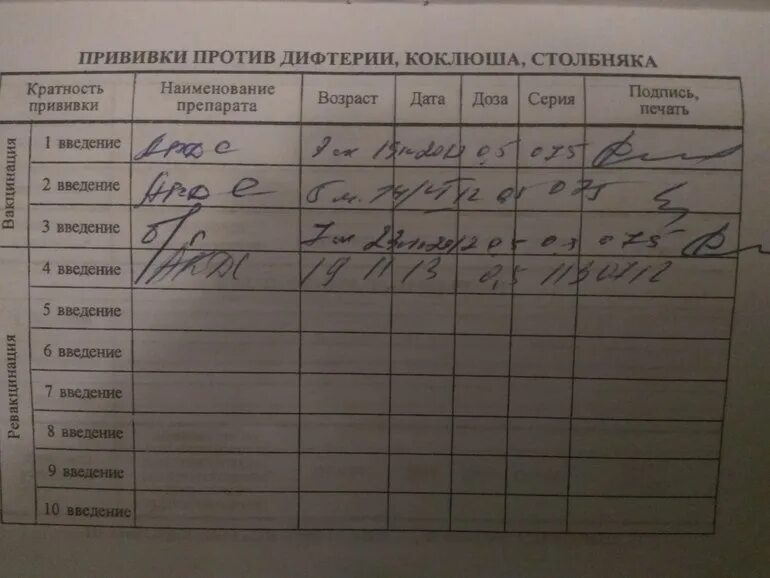 ПРИВИВКИ ПРОТИВ ДИФТЕРИИ, КОКЛЮША, СТОЛБНЯКА
Кратность прививки Наименование препарата Возраст Дата Доза Серия Подпись, печать
Вакцинация
1 введение АКДС 0,5 075
2 введение АКДС 6 м. 0,5 075
3 введение 2012 0,5 075
Ревакцинация
4 введение АКДС 19 11 13 0,5
5 введение
6 введение
7 введение
8 введение
9 введение
10 введение